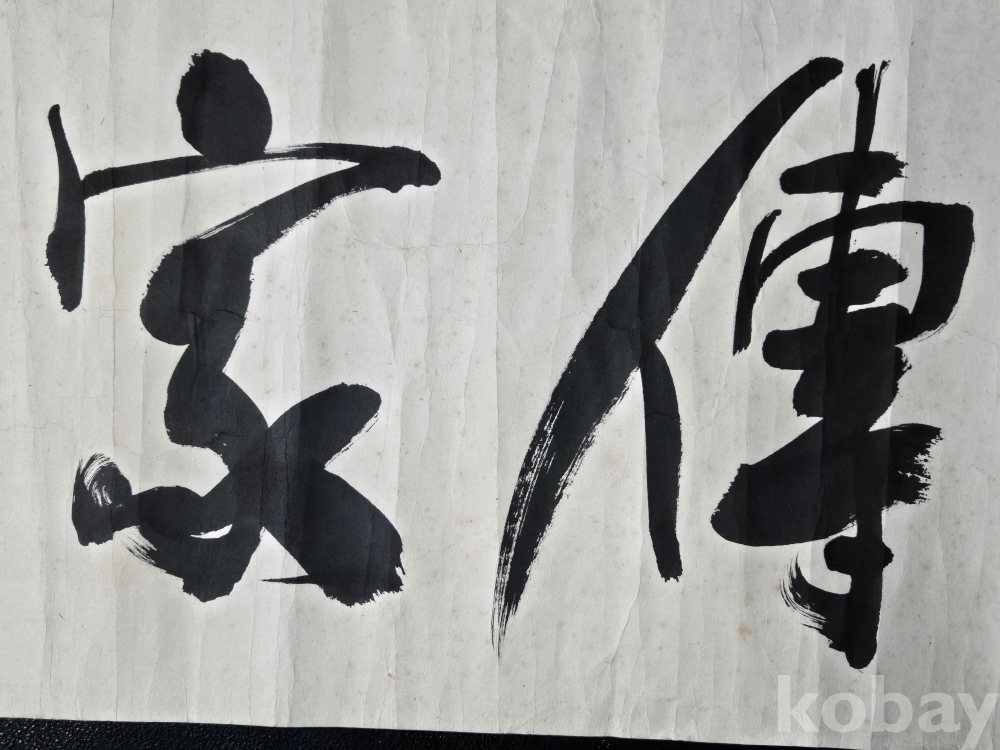 傳家
kobay